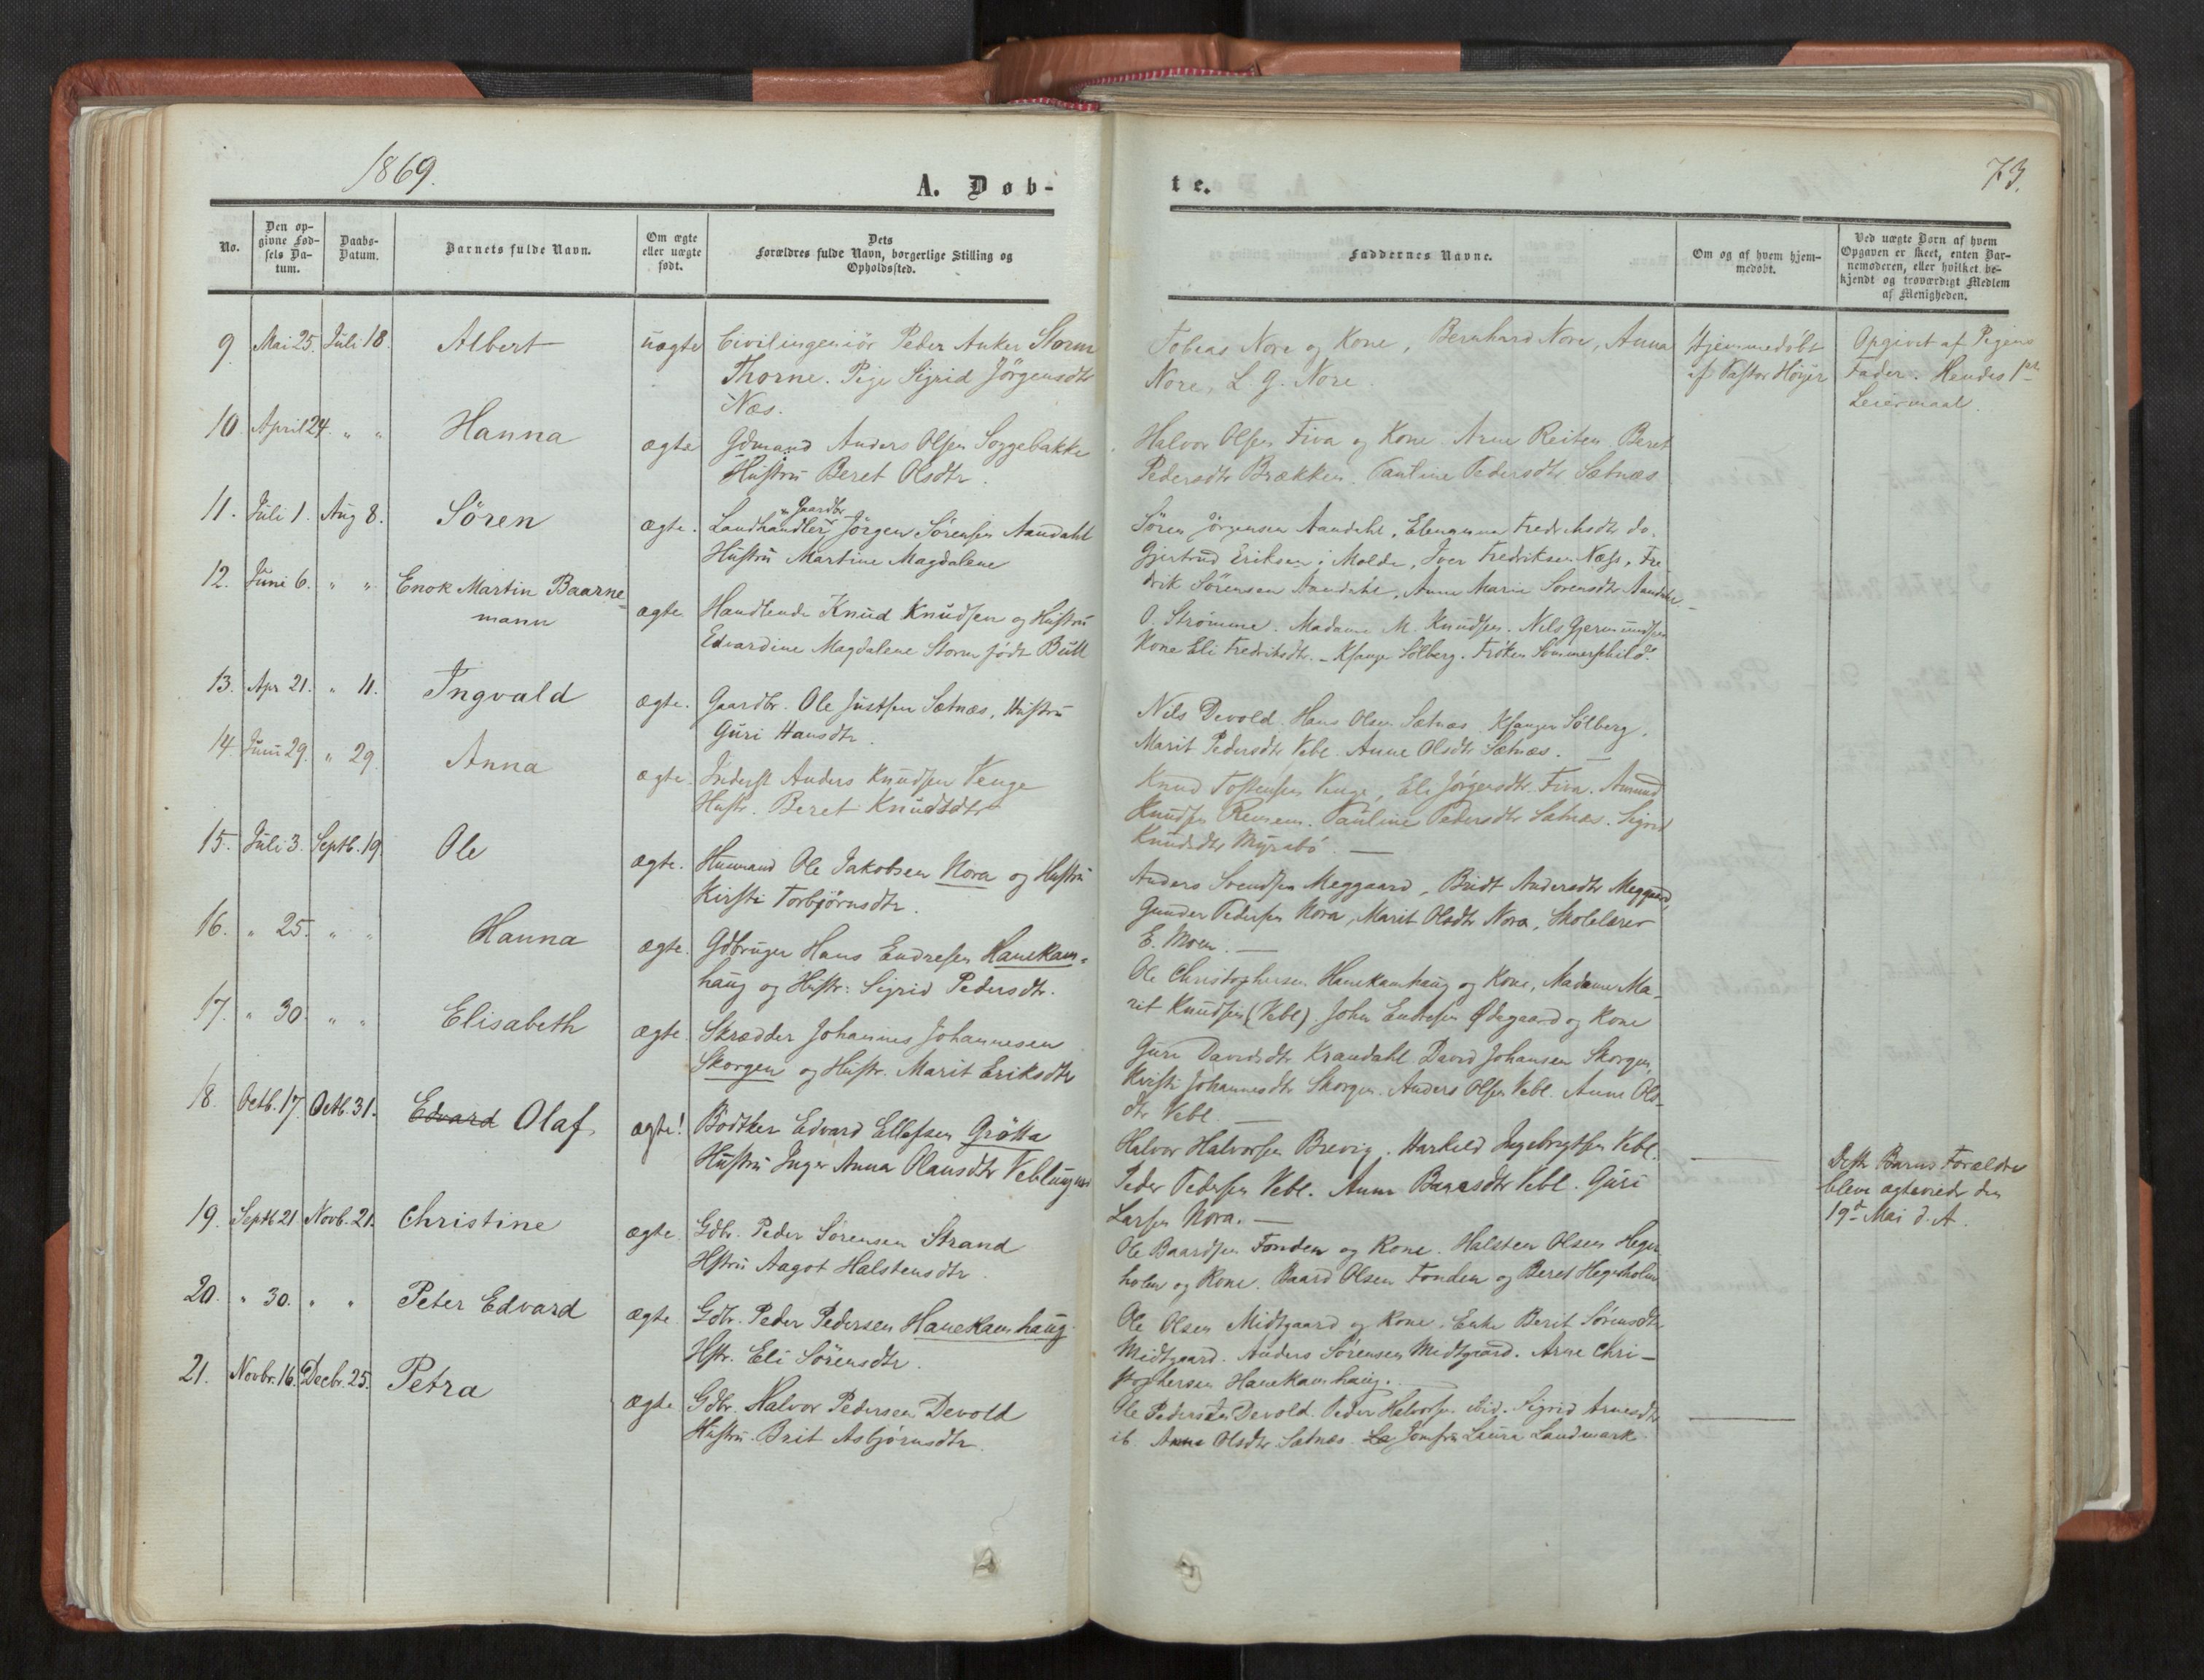 1869.
A. Døb-
No.
Den op-
givne Fød-
sels Da-
tum.
Daabs-
Datum.
Barnets fulde Navn.
Om ægte
eller uægte
født.
Dets
Forældres fulde Navn, borgerlige Stilling og
Opholdssted.
9. Mai 25. Juli 18. Albert uægte Civilingeniör Peder Anker Storm
Thorne. Pige Sigrid Jörgensdtr
Næs.
10. April 24. " " Hanna ægte Gdmand Anders Olsen Soggebakke
Hustru Beret Olsdtr.
11. Juli 1. Aug 8. Sören ægte. Landhandler og Gaardbr Jörgen Sörensen Aandahl
Hustru Martine Magdalene
12. Juni 6. " " Enok Martin Baarne-
mann ægte Handlende Knud Knudsen og Hustru
Edvardine Magdalene Storm födt Bull
13. Apr 21. " 11. Ingvald ægte. Gaardbr. Ole Justsen Sætnæs, Hustru
Guri Hansdtr.
14. Juni 29. " 29. Anna ægte. Inderst Anders Knudsen Venge
Hustr. Beret Knudsdtr
15. Juli 3. Septb. 19. Ole ægte. Husmand Ole Jakobsen Nora og Hustru
Kirsti Torbjörnsdtr.
16. " 25. " " Hanna ægte. Gdbruger Hans Endresen Hanekam-
haug og Hustr: Sigrid Pedersdtr.
17. " 30. " " Elisabeth ægte. Skrædder Johannes Johannesen
Skorgen og Hustr. Marit Eriksdtr
18. Octb. 17. Octb. 31. Edvard Olaf. ægte! Bödtker Edvard Ellefsen Grötta
Hustru Inger Anna Olausdtr Veblungnæs
19. Septb 21. Novb. 21. Christine ægte. Gdbr. Peder Sörensen Strand
Hstru Aagot Halstensdtr.
20. " 30. " " Peter Edvard ægte Gdbr. Peder Pedersen Hanekamhaug.
Hstr. Eli Sörensdtr.
21. Novbr. 16. Decbr. 25. Petra ægte Gdbr. Halvor Pedersen Devold
Hustru. Brit Asbjörnsdtr.
te.
73.
Faddernes Navne.
Om og af hvem hjem-
medøbt.
Ved uægte Børn af hvem
Opgaven er skeet, enten Bar-
nemoderen, eller hvilket be-
kjendt og troværdigt Medlem
af Menigheden.
Tobias Nore og Kone, Bernhard Nore, Anna
Nore, L. G. Nore.
Hjemmedöbt
af Pastor Höyer
Opgivet af Pigens
Fader. Hendes 1ste
Leiermaal.
Halvor Olsen Fiva og Kone. Arne Reiten. Beret
Pedersdtr Brækken. Pauline Pedersdtr Sætnæs
Sören Jörgensen Aandahl, Elenanna Fredriksdtr do.
Gjertrud Eriksen i Molde, Iver Fredriksen Næss, Fre-
drik Sörensen Aandahl, Anne Marie Sorensdtr Aandahl
O. Strömme. Madame M. Knudsen. Nils Gjermundsen
Kone Eli Fredriksdtr. - Ksanger Sölberg. Fröken Sommerschild.
Nils Devold. Hans Olsen Sætnæs. Ksanger Sölberg.
Marit Pedersdtr Vebl. Anne Olsdtr Sætnæs.
Knud Tostensen Venge, Eli Jörgensdtr. Fiva. Amund
Knudsen Remem. Pauline Pedersdtr Sætnæs. Sigrid
Knudsdtr Myrabö.
Anders Svendsen Meggaard, Bridt Andersdtr Meggaard,
Gunder Pedersen Nora, Marit Olsdtr Nora, Skolelærer
E. Moen.
Ole Christophersen Hanekamhaug og Kone, Madame Ma-
rit Knudsen (Vebl). John Endresen Ødegaard og Kone
Guri Davidsdtr Krandahl David Johansen Skorgen,
Kristi Johannesdtr Skorgen. Anders Olsen Vebl. Anne Ols-
dtr Vebl.
Halvor Halvorsen Brevig. Harkild Ingebrygtsen Vebl.
Peder Pedersen Vebl. Anne Vebl. Guri
Larsen Nora.
Dette Barns Forældre
bleve ægteviede den
19d Mai d. A.
Ole Baardsen Fonden og Kone. Halsten Olsen Heger-
holm og Kone. Baard Olsen Fonden og Beret Hegerholm
Ole Olsen Midtgaard og Kone. Enke Berit Sörensdtr
Midtgaard. Anders Sörensen Midtgaard. Arne Chri-
stophersen Hanekamhaug.
Ole Pedersen Devold. Peder Halvorsen ibid. Sigrid Arnesdtr
ib. Anne Olsdtr Sætnæs. La Jomfru Laura Landmark